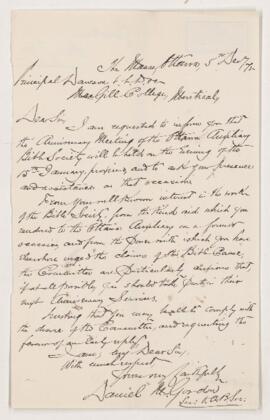 The Manse, Ottawa, 5th Dec /72
Principal Dawson L.L.D.
McGill College, Montreal,
Dear Sir
I am requested to inform you that
the Anniversary Meeting of the Ottawa Auxiliary
Bible Society will be held on the evening of the
15th January, proximo, and to ask your presence
and assistance on that occasion.
From your well known interest in the work
of the Bible Society, from the kind aid which you
rendered to the Ottawa Auxiliary on a former
occasion and from the power with which you have
elsewhere urged the claims of the Bible Cause,
the Committee are particularly desirous that,
if at all possible, you should take part in their
next Anniversary Services.
Trusting that you may be able to comply with
the desire of the Committee, and requesting the
favour of an early reply
I am, my Dear Sir,
With much respect
Yours very faithfully
Daniel M. Gordon
Sec. O.A.B.Soc.